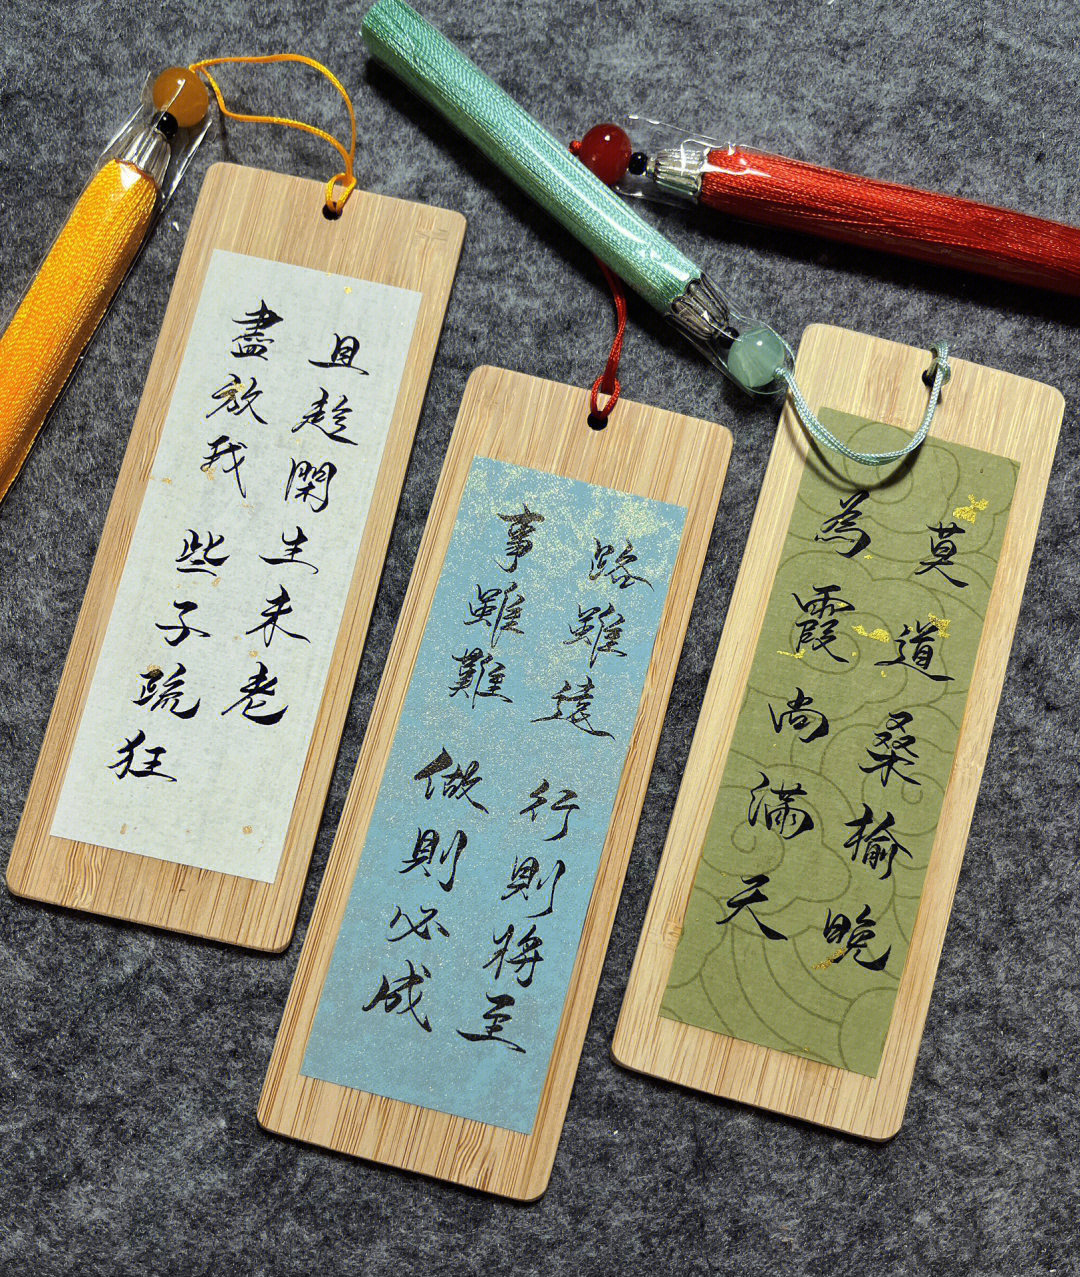 且趁閑生未老
盡放我些子疏狂
路雖遠行則將至
事雖難做則必成
莫道桑榆晚
為霞尚滿天